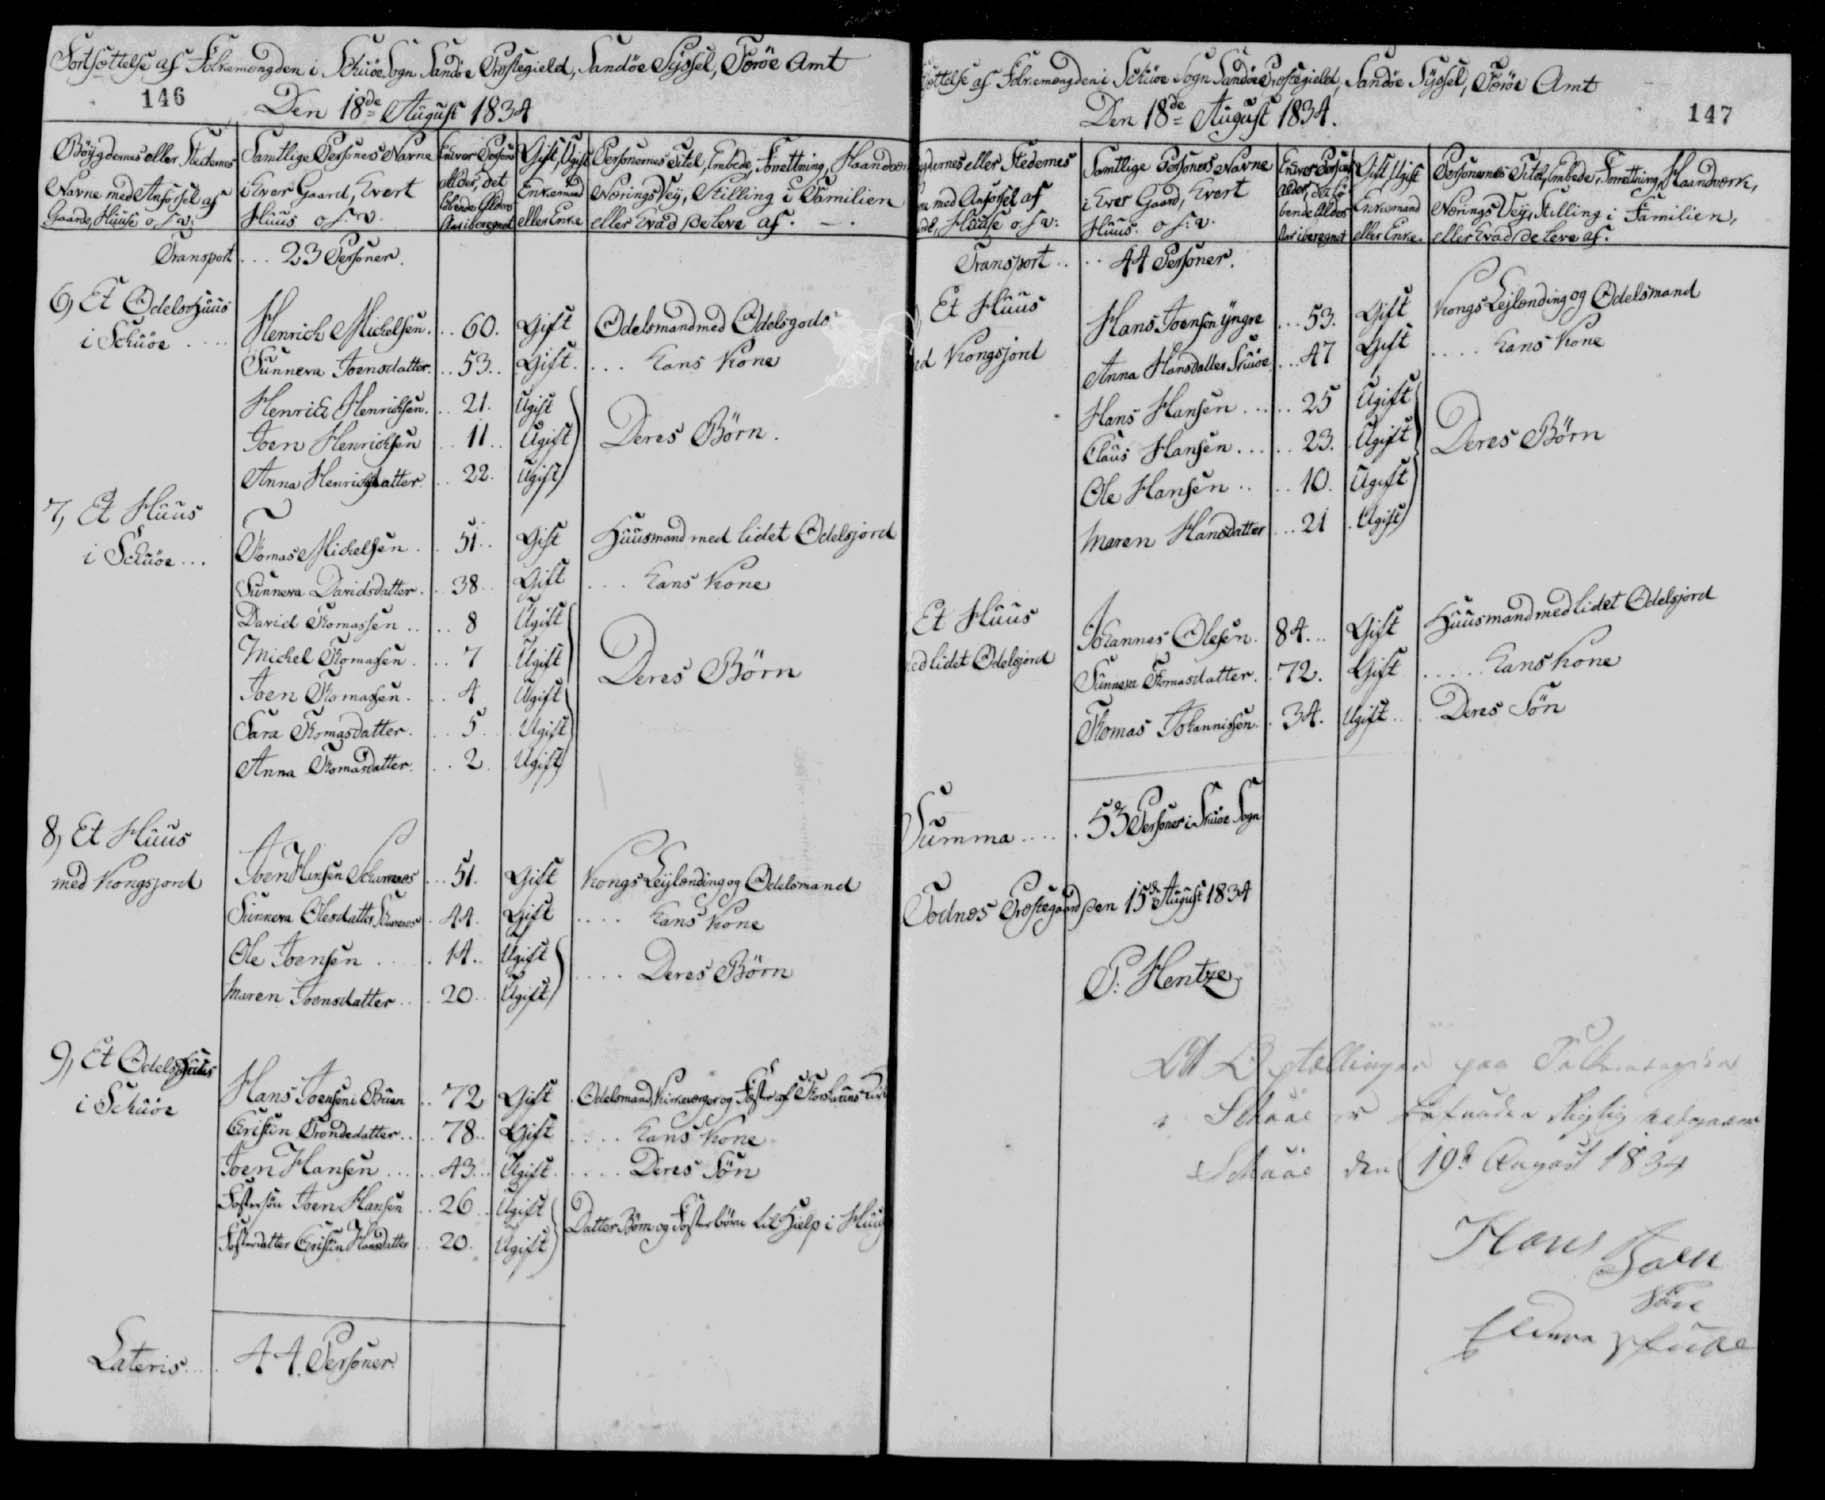 Fortsættelse af Folkemængden i Schuøe Sogn Sandøe Præstegield, Sandøe Sÿssel, Færøe Amt
146
Den 18de August 1834
Böÿgdernes eller Stedernes Navne med Anførsel af Gaarde, Huuse o.s.v.
Samtlige Personers Navne i hver Gaard, hvert Huus o.s.v.
Enhver Persons Alder, det løbende Alders Aar iberegnet
Gift, Ugift Enkemand eller Enke
Personernes Titel, Embede, Forretning, Haandværk Nærings Vej, Stilling i Familien eller hvad de leve af.
Transport ... 23 Personer.
6) Et Odelshuus
i Schuøe ....
Henrich Michelsen. .. 60. Gift Odelsmand med Odelsgods
Sunneva Joensdatter. .. 53. Gift. ... hans Kone
Henrich Henrichsen. .. 21. Ugift
Joen Henrichsen .. 11 .. Ugift Deres Børn.
Anna Henrichsdatter. .. 22. Ugift
7, Et Huus
i Schuøe ...
Thomas Michelsen .. 51. Gift Huusmand med lidet Odelsjord
Sunneva Davidsdatter. .. 38. Gift ... hans Kone
David Thomassen .. .. 8 Ugift
Michel Thomassen. .. 7 Ugift
Joen Thomassen. .. 4 Ugift Deres Børn
Sara Thomasdatter. .. 5. Ugift
Anna Thomasdatter. .. 2. Ugift
8, Et Huus
med Kongsjord
Joen Hansen ... 51. Gift Kongs Leÿlænding og Odelsmand
Sunneva Olesdatter .. 44. Gift .... hans Kone
Ole Joensen .... 14.. Ugift
Maren Joensdatter .. 20. Ugift .... Deres Børn
9, Et Odelshuus
i Schuøe
Hans Joensen i Buen .. 72 Gift . Odelsmand, Kirkeværger og
Christin Trondedatter .. 78.. Gift .... hans Kone
Joen Hansen ... .. 43.. Ugift .... Deres Søn
Fostersøn Joen Hansen .. 26 .. Ugift
Fosterdatter Christin Hansdatter .. 20. Ugift Datter Børn og Fosterbørn til Hjelp i Huus
Lateris .... 44. Personer.
sættelse af Folkemængden i Schuøe Sogn Sandøe Præstegield, Sandøe Sÿssel, Færøe Amt
Den 18de August 1834.
147
gdernes eller Stedernes med Anførsel af Huuse o.s.v.
Samtlige Personers Navne i hver Gaard, hvert Huus o.s.v.
Enhver Persons Alder, det løbende Alders Aar iberegnet
Gift, Ugift Enkemand eller Enke.
Personernes Titel, Embede, Forretning, Haandværk, Nærings Veÿ, Stilling i Familien, eller hvad de leve af.
Transport .. .. 44 Personer.
Et Huus
ed Kongsjord
Hans Joensen ÿngre ... 53. Gift Kongs Lejlænding og Odelsmand
Anna Hansdatter Skuøe ... 47 Gift .... hans Kone
Hans Hansen ..... 25 Ugift
Claus Hansen ..... 23. Ugift Deres Børn
Ole Hansen .. .. 10. Ugift
Maren Hansdatter ... 21 Ugift
Et Huus
ed lidet Odelsjord
Johannes Olesen. 84... Gift Huusmand med lidet Odelsjord
Sunneva Thomasdatter. 72. Gift ..... hans Kone
Thomas Johannissen. 34. Ugift .. Deres Søn
Summa .... . 53 Personer i Skuøe Sogn
Todnæs Præstegaard den 15de August 1834
P. Hentze
At Optællingen paa Folkemængden
i Schuøe er befunden Rigtig
Schuøe den 19de August 1834
Hans Joen